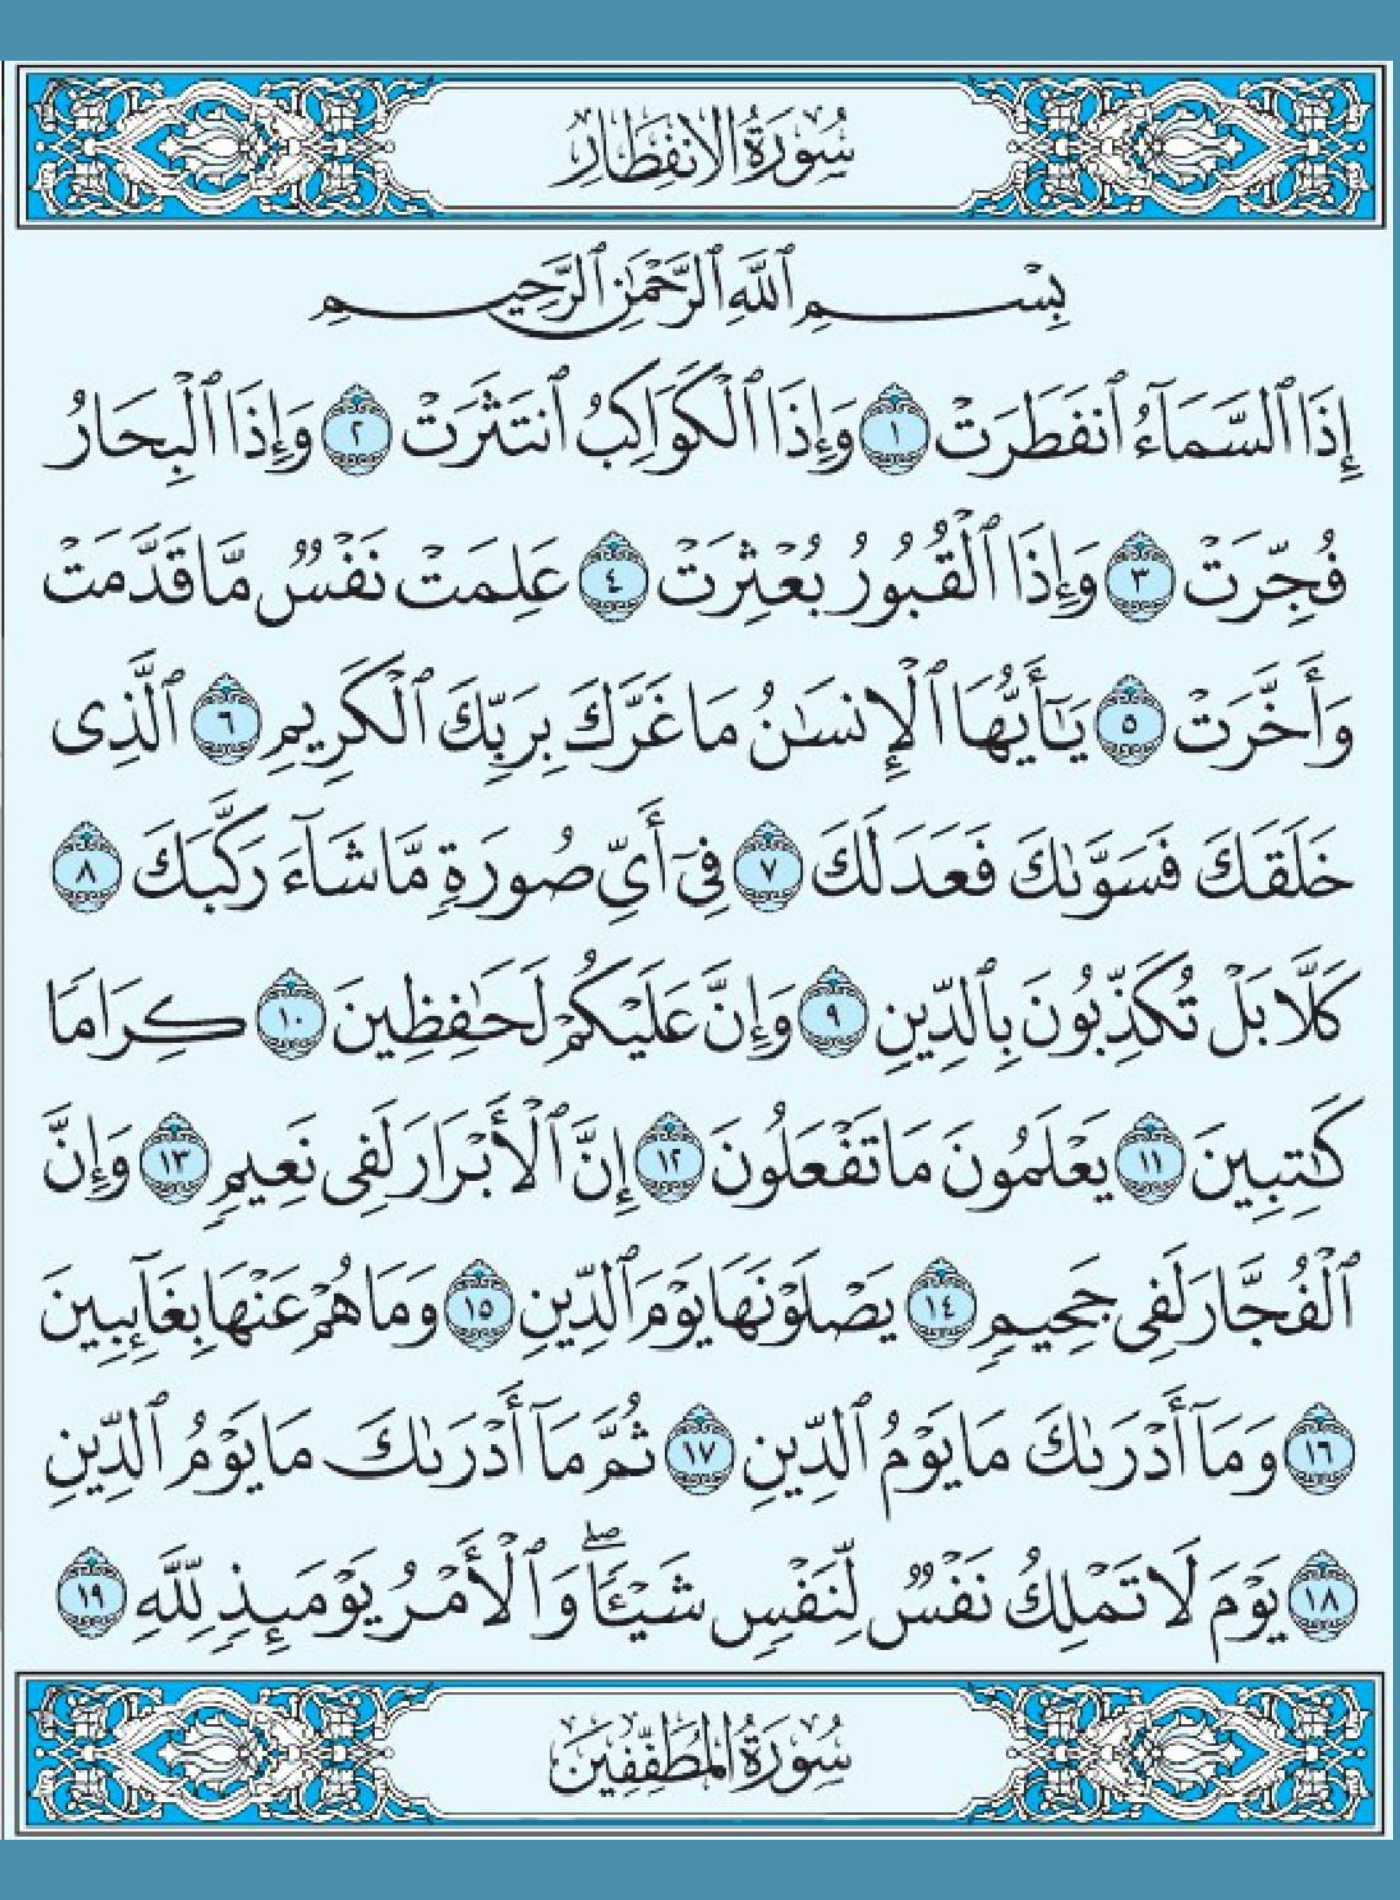 سُورَةُ الِانفِطَارِ
بِسْمِ ٱللَّهِ ٱلرَّحْمَٰنِ ٱلرَّحِيمِ
إِذَا ٱلسَّمَآءُ ٱنفَطَرَتْ ١ وَإِذَا ٱلْكَوَاكِبُ ٱنتَثَرَتْ ٢ وَإِذَا ٱلْبِحَارُ
فُجِّرَتْ ٣ وَإِذَا ٱلْقُبُورُ بُعْثِرَتْ ٤ عَلِمَتْ نَفْسٌ مَّا قَدَّمَتْ
وَأَخَّرَتْ ٥ يَٰٓأَيُّهَا ٱلْإِنسَٰنُ مَا غَرَّكَ بِرَبِّكَ ٱلْكَرِيمِ ٦ ٱلَّذِى
خَلَقَكَ فَسَوَّىٰكَ فَعَدَلَكَ ٧ فِىٓ أَىِّ صُورَةٍ مَّا شَآءَ رَكَّبَكَ ٨
كَلَّا بَلْ تُكَذِّبُونَ بِٱلدِّينِ ٩ وَإِنَّ عَلَيْكُمْ لَحَٰفِظِينَ ١٠ كِرَامًا
كَٰتِبِينَ ١١ يَعْلَمُونَ مَا تَفْعَلُونَ ١٢ إِنَّ ٱلْأَبْرَارَ لَفِى نَعِيمٍ ١٣ وَإِنَّ
ٱلْفُجَّارَ لَفِى جَحِيمٍ ١٤ يَصْلَوْنَهَا يَوْمَ ٱلدِّينِ ١٥ وَمَا هُمْ عَنْهَا بِغَآئِبِينَ
١٦ وَمَآ أَدْرَىٰكَ مَا يَوْمُ ٱلدِّينِ ١٧ ثُمَّ مَآ أَدْرَىٰكَ مَا يَوْمُ ٱلدِّينِ
١٨ يَوْمَ لَا تَمْلِكُ نَفْسٌ لِّنَفْسٍ شَيْـًٔا ۖ وَٱلْأَمْرُ يَوْمَئِذٍ لِّلَّهِ ١٩
سُورَةُ المُطَفِّفِينَ